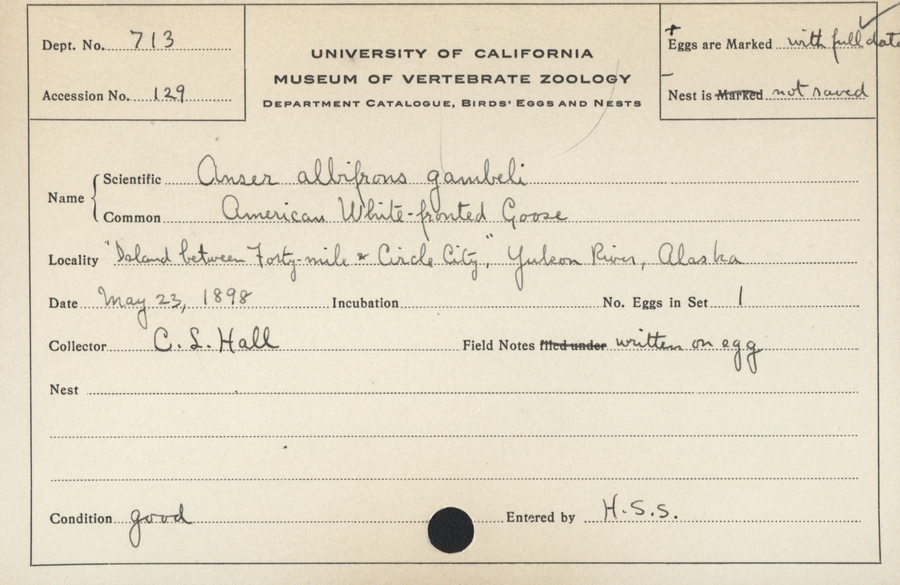 Dept. No. 713
Accession No. 129
UNIVERSITY OF CALIFORNIA
MUSEUM OF VERTEBRATE ZOOLOGY
DEPARTMENT CATALOGUE, BIRDS' EGGS AND NESTS
Eggs are Marked with full data
Nest is Marked not saved
Name
Scientific Anser albifrons gambeli
Common American White-fronted Goose
Locality "Island between Forty-mile & Circle City," Yukon River, Alaska
Date May 23, 1898 Incubation No. Eggs in Set 1
Collector C. L. Hall Field Notes filed under written on egg
Nest
Condition good Entered by H.S.S.